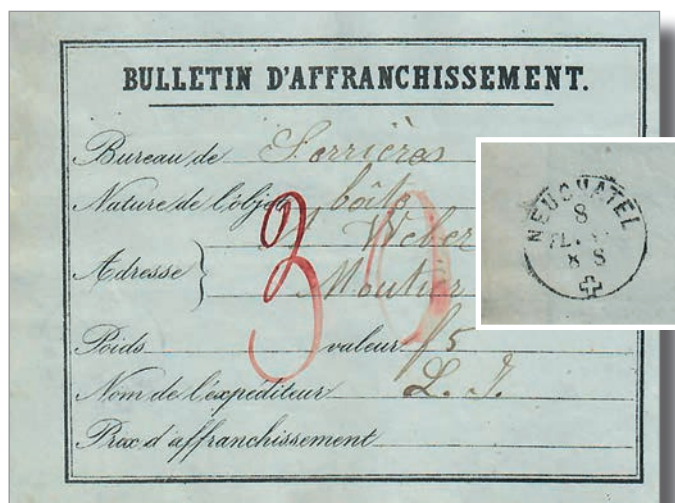 BULLETIN D'AFFRANCHISSEMENT.
Bureau de Serrières
Nature de l'objet boîte
Weber
Adresse } Moutier
Poids valeur f 5
Nom de l'expéditeur L. J.
Prix d'affranchissement
30
NEUCHATEL
8
8